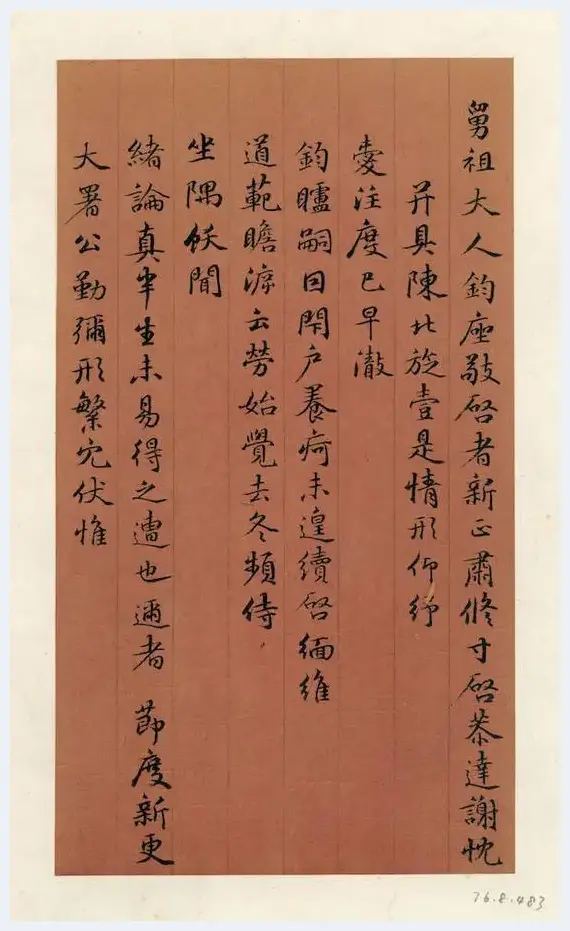 舅祖大人鈞座敬啓者新正肅修寸啓恭達謝忱
并具陳北旋壹是情形仰紓
愛注度已早澈
鈞矑嗣因閈戶養疴未遑續啓緬維
道範瞻溯云勞始覺去冬頻侍
坐隅飫聞
緒論真半生未易得之遭也邇者 節度新更
大署公勤彌形繁冗伏惟
76.8.483